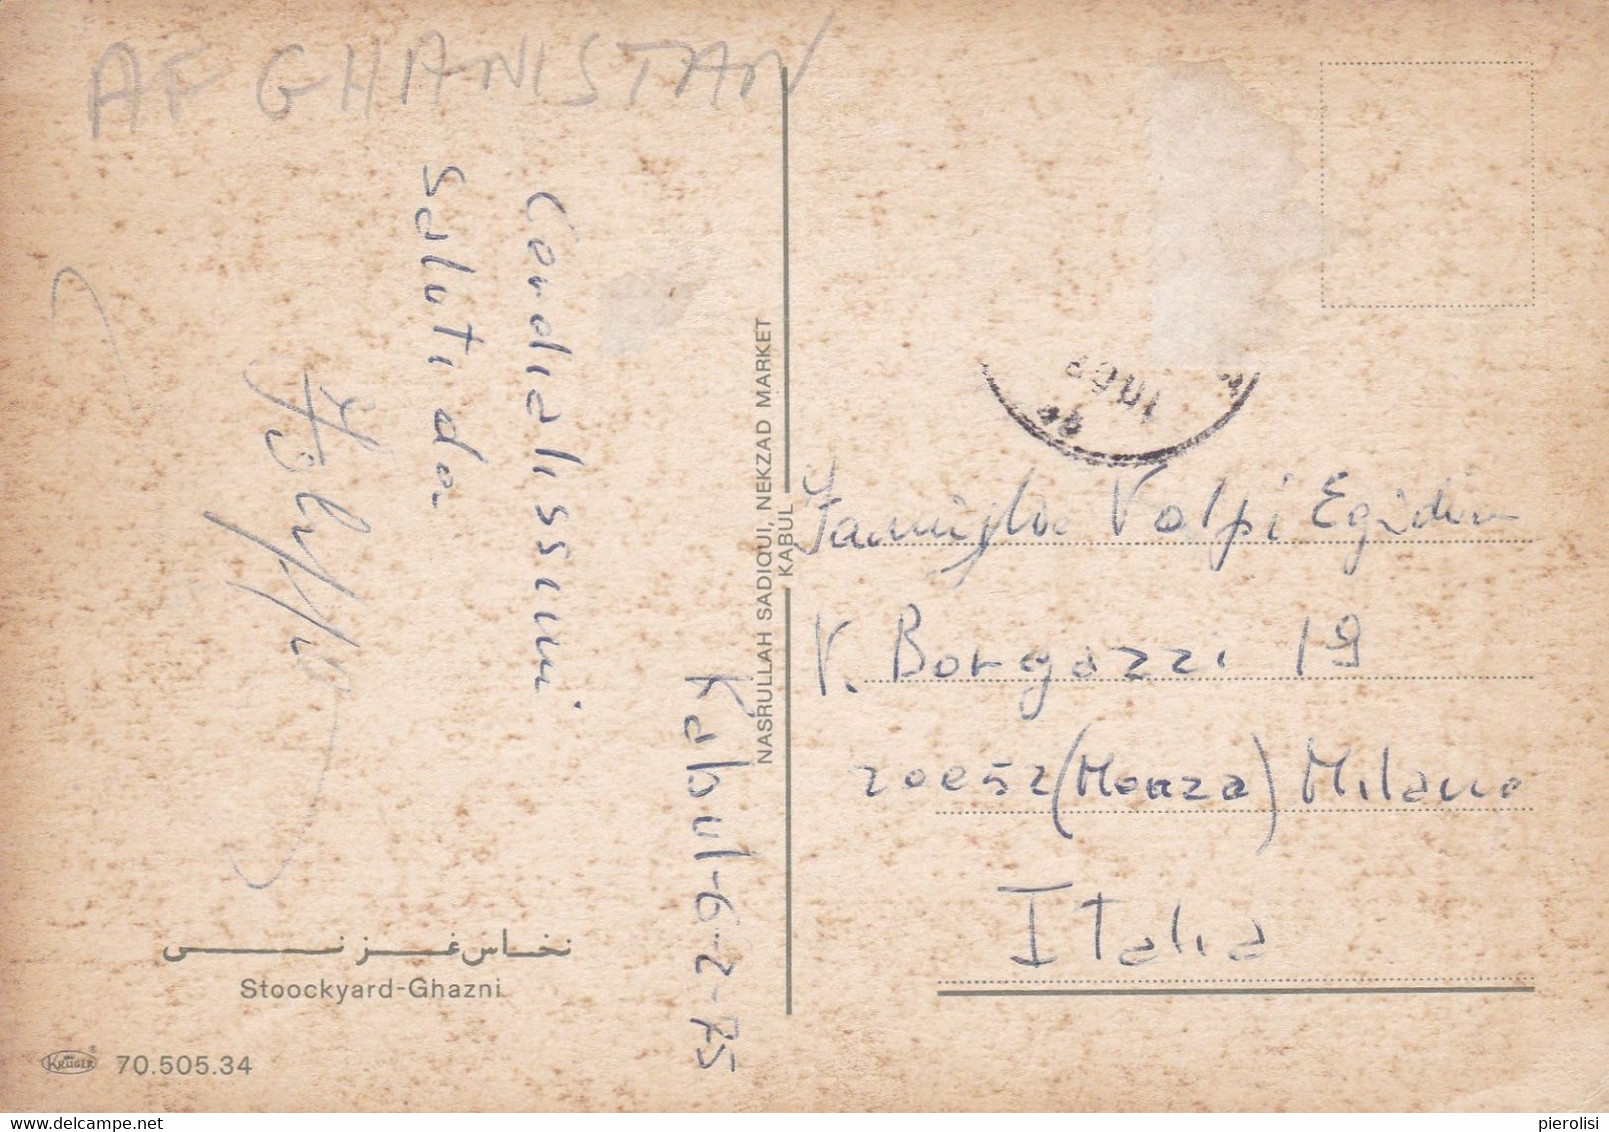 AFGHANISTAN
Cordialissimi
Saluti da
Kabul-6-2-75
NASRULLAH SADIQUI, NEKZAD MARKET
KABUL
Famiglia Volpi Egidio
V. Borgazzi 19
20052 (Monza) Milano
Italia
نخاس غزنی
Stoockyard-Ghazni
KRÜGER ® 70.505.34
delcampe.net
pierolisi